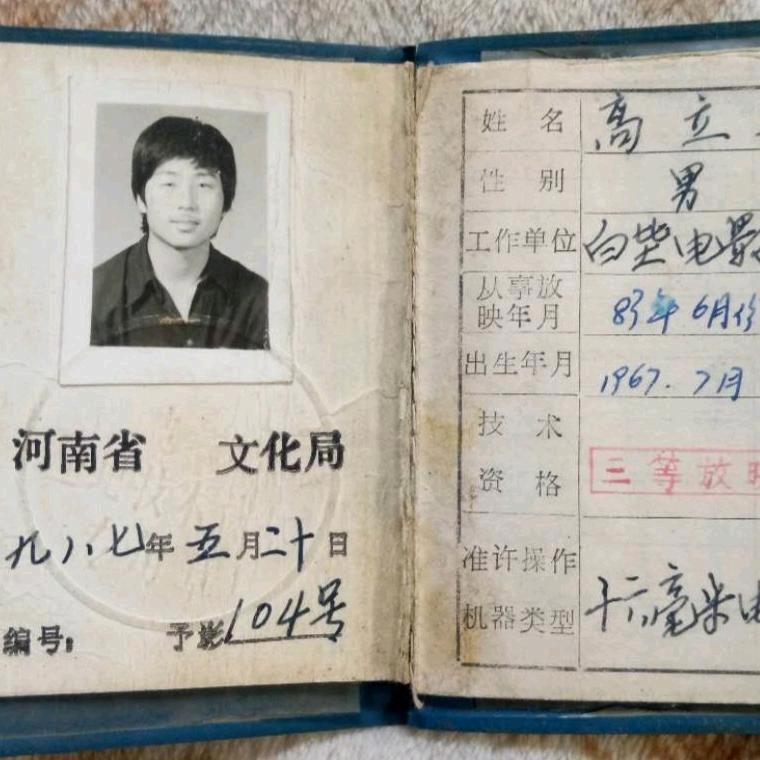 河南省 文化局
九八七年五月二十日
编号: 予影104号
姓名 高立
性别 男
工作单位 白 电影
从事放
映年月 83年6月份
出生年月 1967.7月
技术
资格 三等放映
准许操作
机器类型 十六毫米电